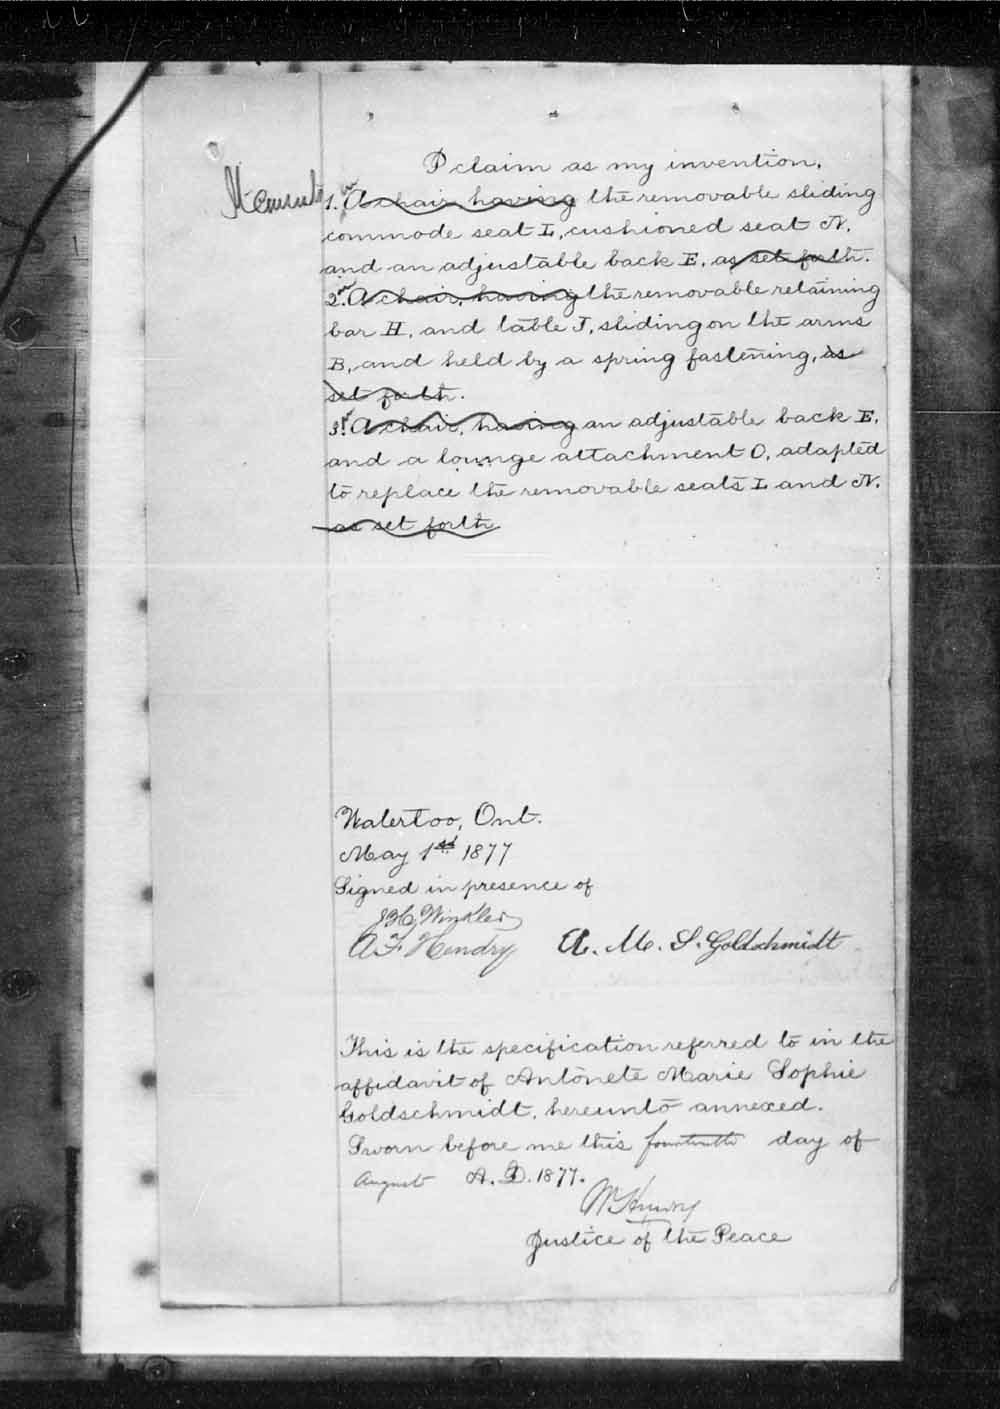 I claim as my invention,
1st A chair having the removable sliding
commode seat L, cushioned seat N,
and an adjustable back E, as set forth.
2nd A chair, having the removable retaining
bar H, and table J, sliding on the arms
B, and held by a spring fastening, as
set forth.
3rd A chair, having an adjustable back E,
and a lounge attachment O, adapted
to replace the removable seats L and N,
as set forth
Waterloo, Ont.
May 1st 1877
Signed in presence of
J H Winkler
A F Hendry A. M. S. Goldschmidt
This is the specification referred to in the
affidavit of Antonete Marie Sophie
Goldschmidt, hereunto annexed.
Sworn before me this fourteenth day of
August A. D. 1877.
Justice of the Peace